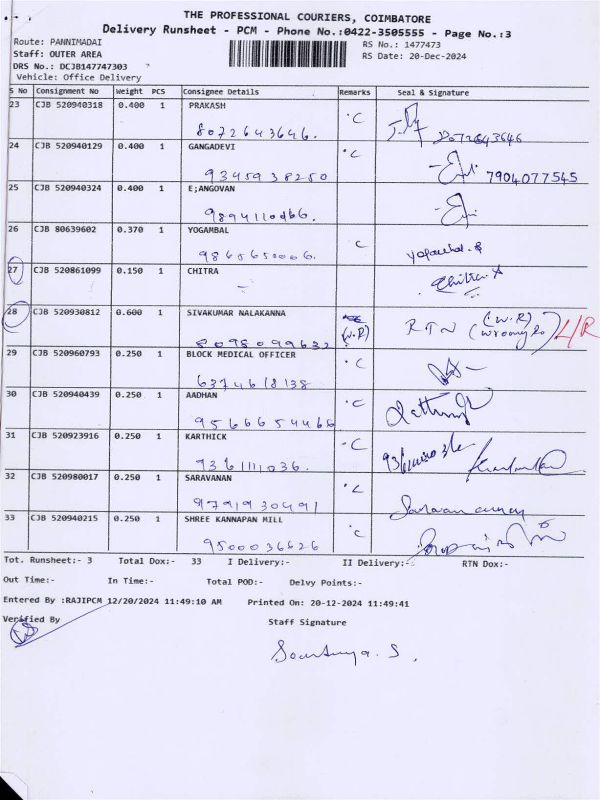 THE PROFESSIONAL COURIERS, COIMBATORE
Delivery Runsheet - PCM - Phone No.:0422-3505555 - Page No.:3
Route: PANNIMADAI RS No.: 1477473
Staff: OUTER AREA RS Date: 20-Dec-2024
DRS No.: DCJB147747303
Vehicle: Office Delivery
S No Consignment No Weight PCS Consignee Details Remarks Seal & Signature
23 CJB 520940318 0.400 1 PRAKASH C
8072643646. 8072643646
24 CJB 520940129 0.400 1 GANGADEVI C
9345938250 7904077545
25 CJB 520940324 0.400 1 E;ANGOVAN
9894110466.
26 CJB 80639602 0.370 1 YOGAMBAL C
9865650006.
27 CJB 520861099 0.150 1 CHITRA
Chitra
28 CJB 520930812 0.600 1 SIVAKUMAR NALAKANNA (W.R) RTN (W.R)
8098099632
29 CJB 520960793 0.250 1 BLOCK MEDICAL OFFICER C
6374618138
30 CJB 520940439 0.250 1 AADHAN C
9566654466
31 CJB 520923916 0.250 1 KARTHICK C
9361111036.
32 CJB 520980017 0.250 1 SARAVANAN C
9791930491
33 CJB 520940215 0.250 1 SHREE KANNAPAN MILL C
9500036626
Tot. Runsheet:- 3 Total Dox:- 33 I Delivery:- II Delivery:- RTN Dox:-
Out Time:- In Time:- Total POD:- Delvy Points:-
Entered By :RAJIPCM 12/20/2024 11:49:10 AM Printed On: 20-12-2024 11:49:41
Verified By Staff Signature